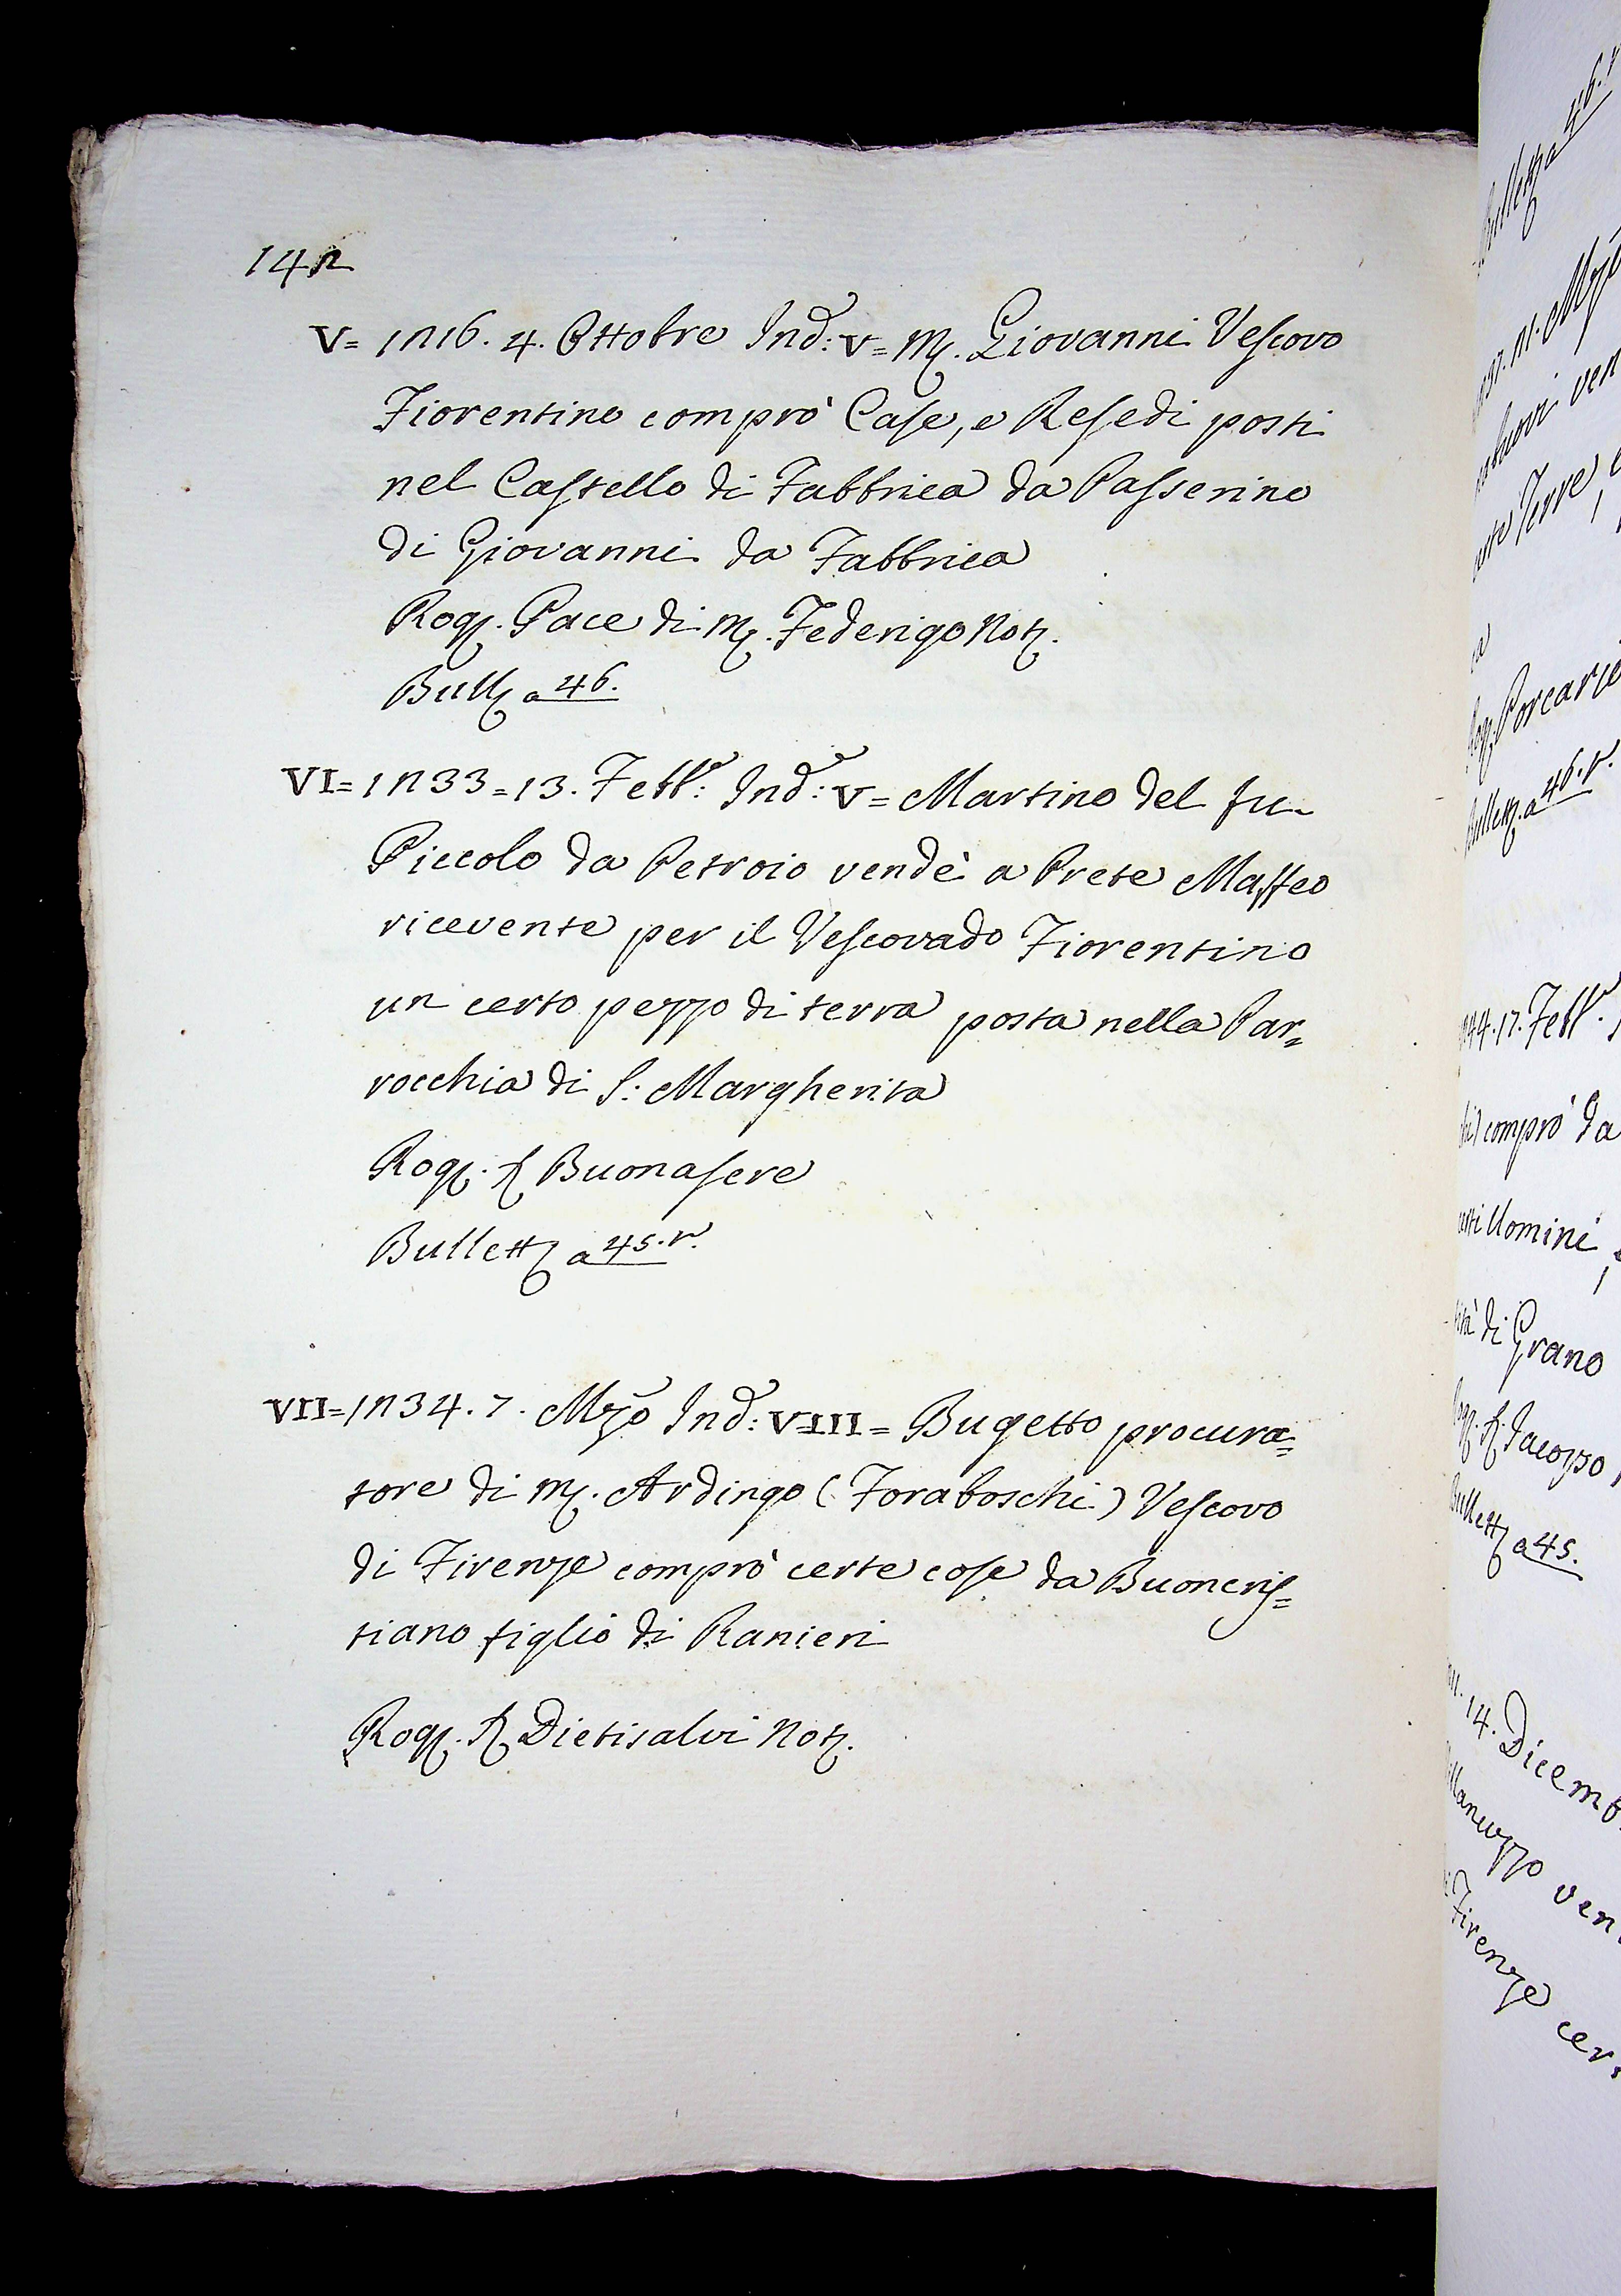 142
V= 1216. 4. Ottobre Ind: V= M. Giovanni Vescovo
Fiorentino comprò Case, e Resedi posti
nel Castello di Fabbrica da Passerino
di Giovanni da Fabbrica
Rog. Pace di M. Federigo Not.
Bull. a 46.
VI= 1233=13. Febb.º: Ind: V= Martino del fu
Piccolo da Petroio vendè a Prete Maffeo
ricevente per il Vescovado Fiorentino
un certo pezzo di terra posta nella Par=
rocchia di S: Margherita
Rog. S. Buonasere
Bullett. a 45.r.
VII=1234. 7. Mzo Ind: VIII= Bugetto procura=
tore di M. Ardingo (Foraboschi) Vescovo
di Firenze comprò certe cose da Buoncris=
tiano figlio di Ranieri
Rog. S. Dietisalvi Not.
Bullett. a 46.
Terre
Rog. Porcari
Bullett. a 46.r.
244. 17. Febb.
comprò da
Uomini
di Grano
Rog. S. Jacopo
Bullett. a 45.
14. Dicemb
ven
Firenze cer